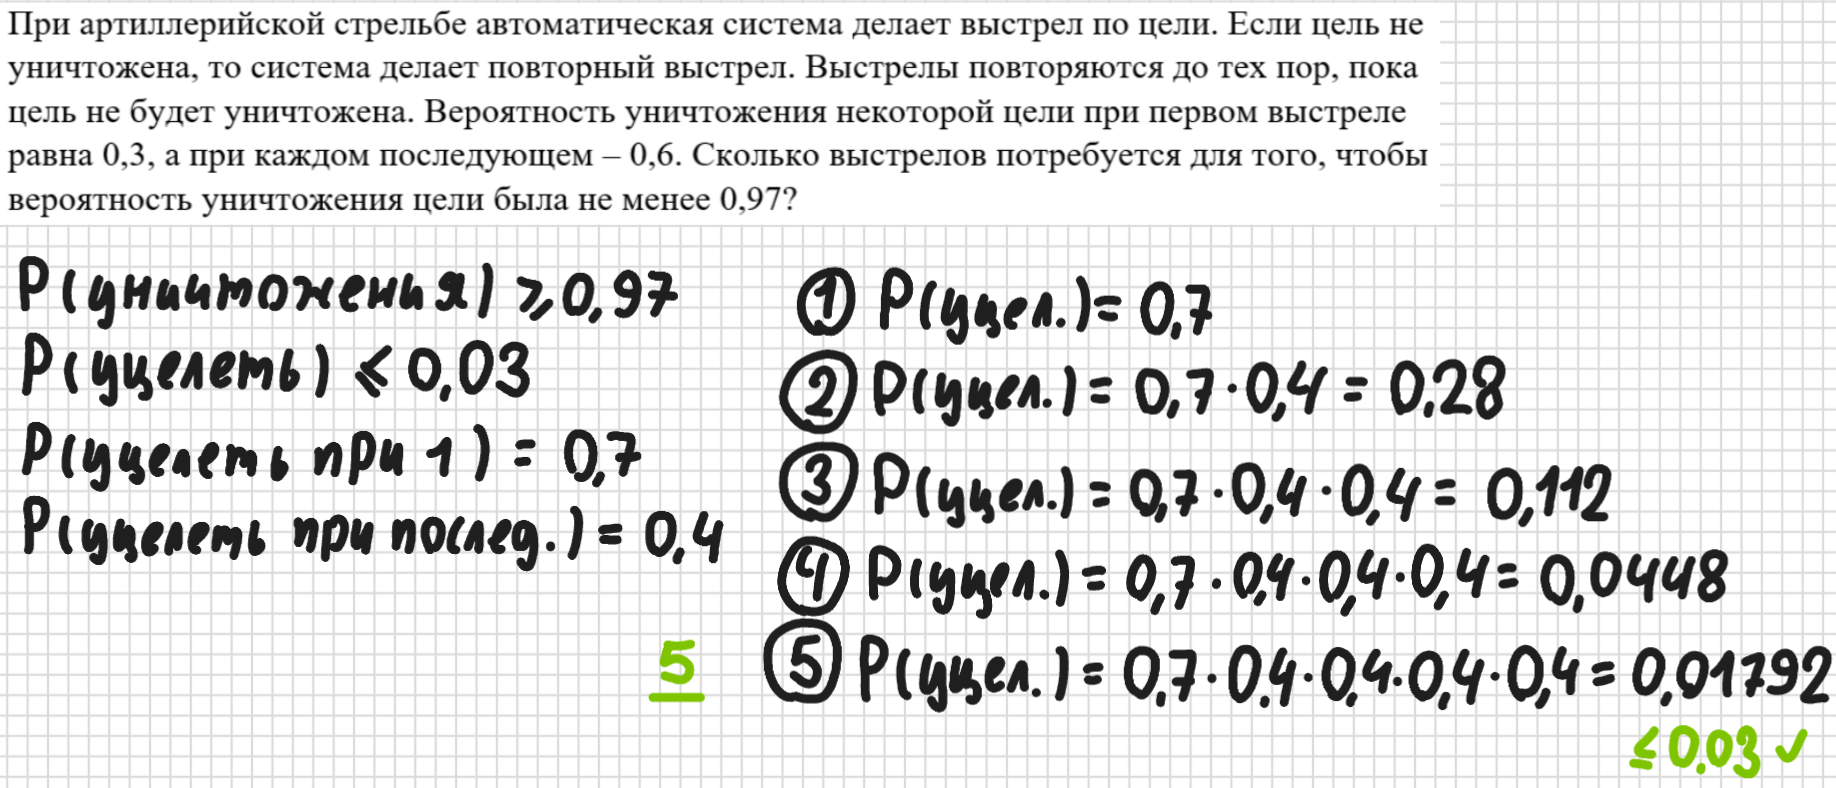 При артиллерийской стрельбе автоматическая система делает выстрел по цели. Если цель не
уничтожена, то система делает повторный выстрел. Выстрелы повторяются до тех пор, пока
цель не будет уничтожена. Вероятность уничтожения некоторой цели при первом выстреле
равна 0,3, а при каждом последующем – 0,6. Сколько выстрелов потребуется для того, чтобы
вероятность уничтожения цели была не менее 0,97?
P(уничтожения) ⩾ 0,97
P(уцелеть) ⩽ 0,03
P(уцелеть при 1) = 0,7
P(уцелеть при послед.) = 0,4
5
① P(уцел.) = 0,7
② P(уцел.) = 0,7 · 0,4 = 0,28
③ P(уцел.) = 0,7 · 0,4 · 0,4 = 0,112
④ P(уцел.) = 0,7 · 0,4 · 0,4 · 0,4 = 0,0448
⑤ P(уцел.) = 0,7 · 0,4 · 0,4 · 0,4 · 0,4 = 0,01792
≤ 0,03 ✓